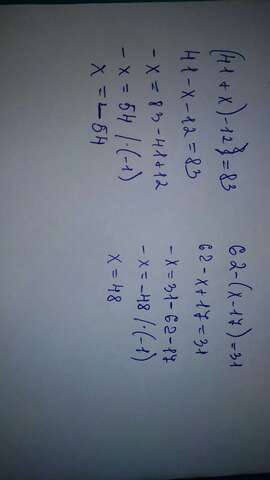 (41+x)-12}=83
41-x-12=83
-x=83-41+12
-x=54/·(-1)
x=-54
62-(x-17)=31
62-x+17=31
-x=31-62-17
-x=-48/·(-1)
x=48